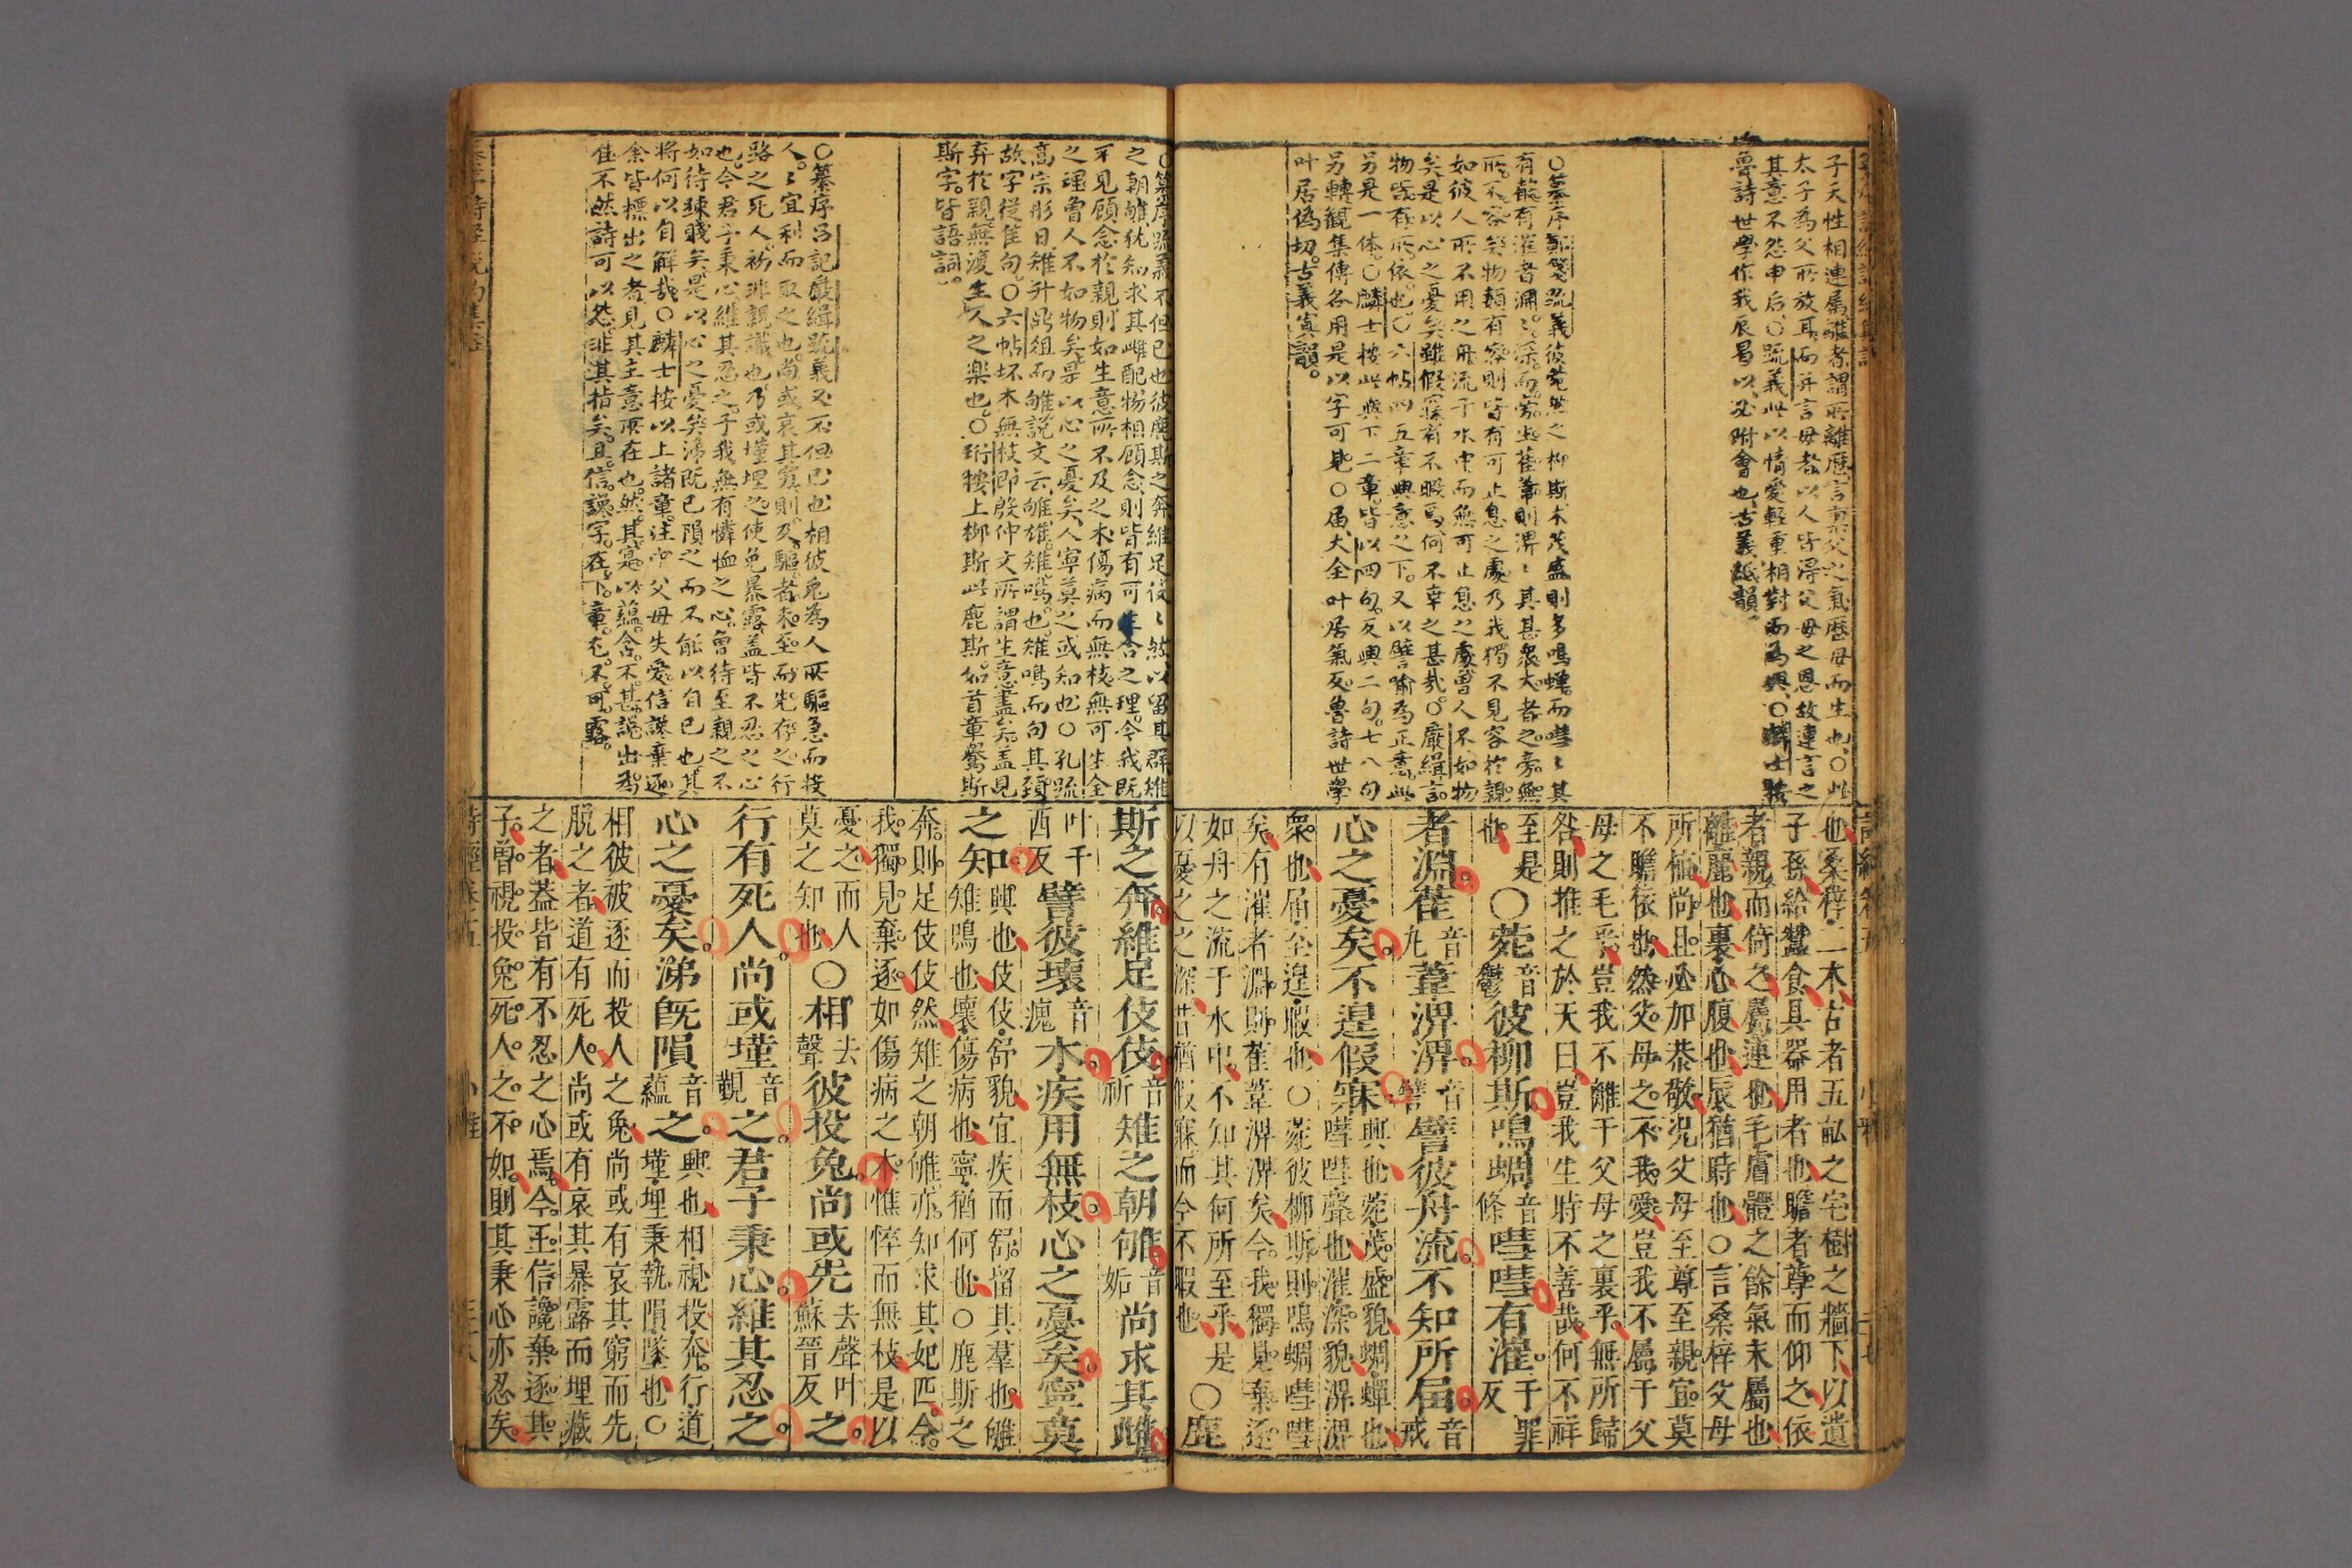 子天性相連屬離者謂所離歷言稟父之氣歷母而生也○此
太子為父所放耳而并言母者以人皆得父母之恩故連言之
其意不怨申后○疏義此以情愛輕重相對而為興○麟士按
魯詩世學作我辰曷以必附會也古義紙韻
○纂序鄭箋疏義彼菀然之柳斯木茂盛則多鳴蜩而嘒〻其
有漼有漼者淵〻深而旁生萑葦則淠〻其甚衆大者之旁無
所不容矣物類有容則皆有可止息之處乃我獨不見容於親
如彼人所不用之舟流于水中而無可止息之處曾人不如物
矣是以心之憂矣雖假寐有不暇焉何不幸之甚哉○嚴緝言
物皆有所依也○六帖四五章興意之下又以譬喻為正意此
另是一体○麟士按此與下二章皆以四句反興二句七八句
另轉觀集傳各用是以字可見○屆大全叶居氣反魯詩世學
叶居偽切古義寘韻
也桑梓二木古者五畝之宅樹之牆下以遺
子孫給蠶食具器用者也瞻者尊而仰之依
者親而倚之屬連也毛膚體之餘氣末屬也
離麗也裏心腹也辰猶時也○言桑梓父母
所植尚且必加恭敬況父母至尊至親宜莫
不瞻依也然父母之不我愛豈我不屬于父
母之毛乎豈我不離于父母之裏乎無所歸
咎則推之於天曰豈我生時不善哉何不祥
至是也○菀音鬱彼柳斯鳴蜩音條嘒嘒有漼千罪反
者淵萑音九葦淠淠音譬譬彼舟流不知所屆音戒
心之憂矣不遑假寐興也菀茂盛貌蜩蟬也嘒嘒聲也漼深貌淠淠
衆也屆至遑暇也○菀彼柳斯則鳴蜩嘒嘒
矣有漼者淵則萑葦淠淠矣今我獨見棄逐
如舟之流于水中不知其何所至乎是
以憂之之深昔猶假寐而今不暇也○鹿
○纂序疏義不但已也彼鹿斯之奔維足伎〻然以留其群雉
之朝雊犹知求其雌配物相顧念則皆有可生全之理今我既
不見顧念於親則如生意所不及之木傷病而無枝無可生全
之理曾人不如物矣是以心之憂矣人寧莫之或知也○孔疏
高宗肜日雉升鼎俎而雊說文云雊雄雉鳴也雉鳴而句其頸
故字從隹句○六帖坏木無枝即殷仲文所謂生意盡矣蓋見
弃於親無復生人之樂也○珩按上柳斯此鹿斯如首章鸒斯
斯字皆語詞
○纂序呂記嚴緝疏義又不但已也相彼兔為人所驅急而投
人〻宜利而取之也尚或哀其窮則及驅者未至而先存之行
路之死人初非親識也乃或墐埋之使免暴露蓋皆不忍之心
也今君子秉心維其忍之于我無有憐恤之心曾待至親之不
如待疎賤矣是以心之憂矣涕既已隕之而不能以自已也其
將何以自解哉○麟士按以上諸章注中父母失愛信讒棄逐
余皆標出之者見其主意所在也然其寔以蘊含不甚說出爲
佳不然詩可以怨非其指矣且信讒字在下章尤不可露
斯之奔維足伎伎音祈雉之朝雊音姤尚求其雌
叶千西反譬彼壞音瘣木疾用無枝心之憂矣寧莫
之知興也伎伎舒貌宜疾而舒留其羣也雊雉鳴也壞傷病也寧猶何也○鹿斯之
奔則足伎伎然雉之朝雊亦知求其妃匹今
我獨見棄逐如傷病之木憔悴而無枝是以
憂之而人莫之知也○相去聲彼投兔尚或先去聲叶蘇晉反之
行有死人尚或墐音覲之君子秉心維其忍之
心之憂矣涕旣隕音蘊之興也相視投奔行道墐埋秉執隕墜也○
相彼被逐而投人之兔尚或有哀其窮而先
脫之者道有死人尚或有哀其暴露而埋藏
之者蓋皆有不忍之心焉今王信讒棄逐其
子曾視投兔死人之不如則其秉心亦忍矣